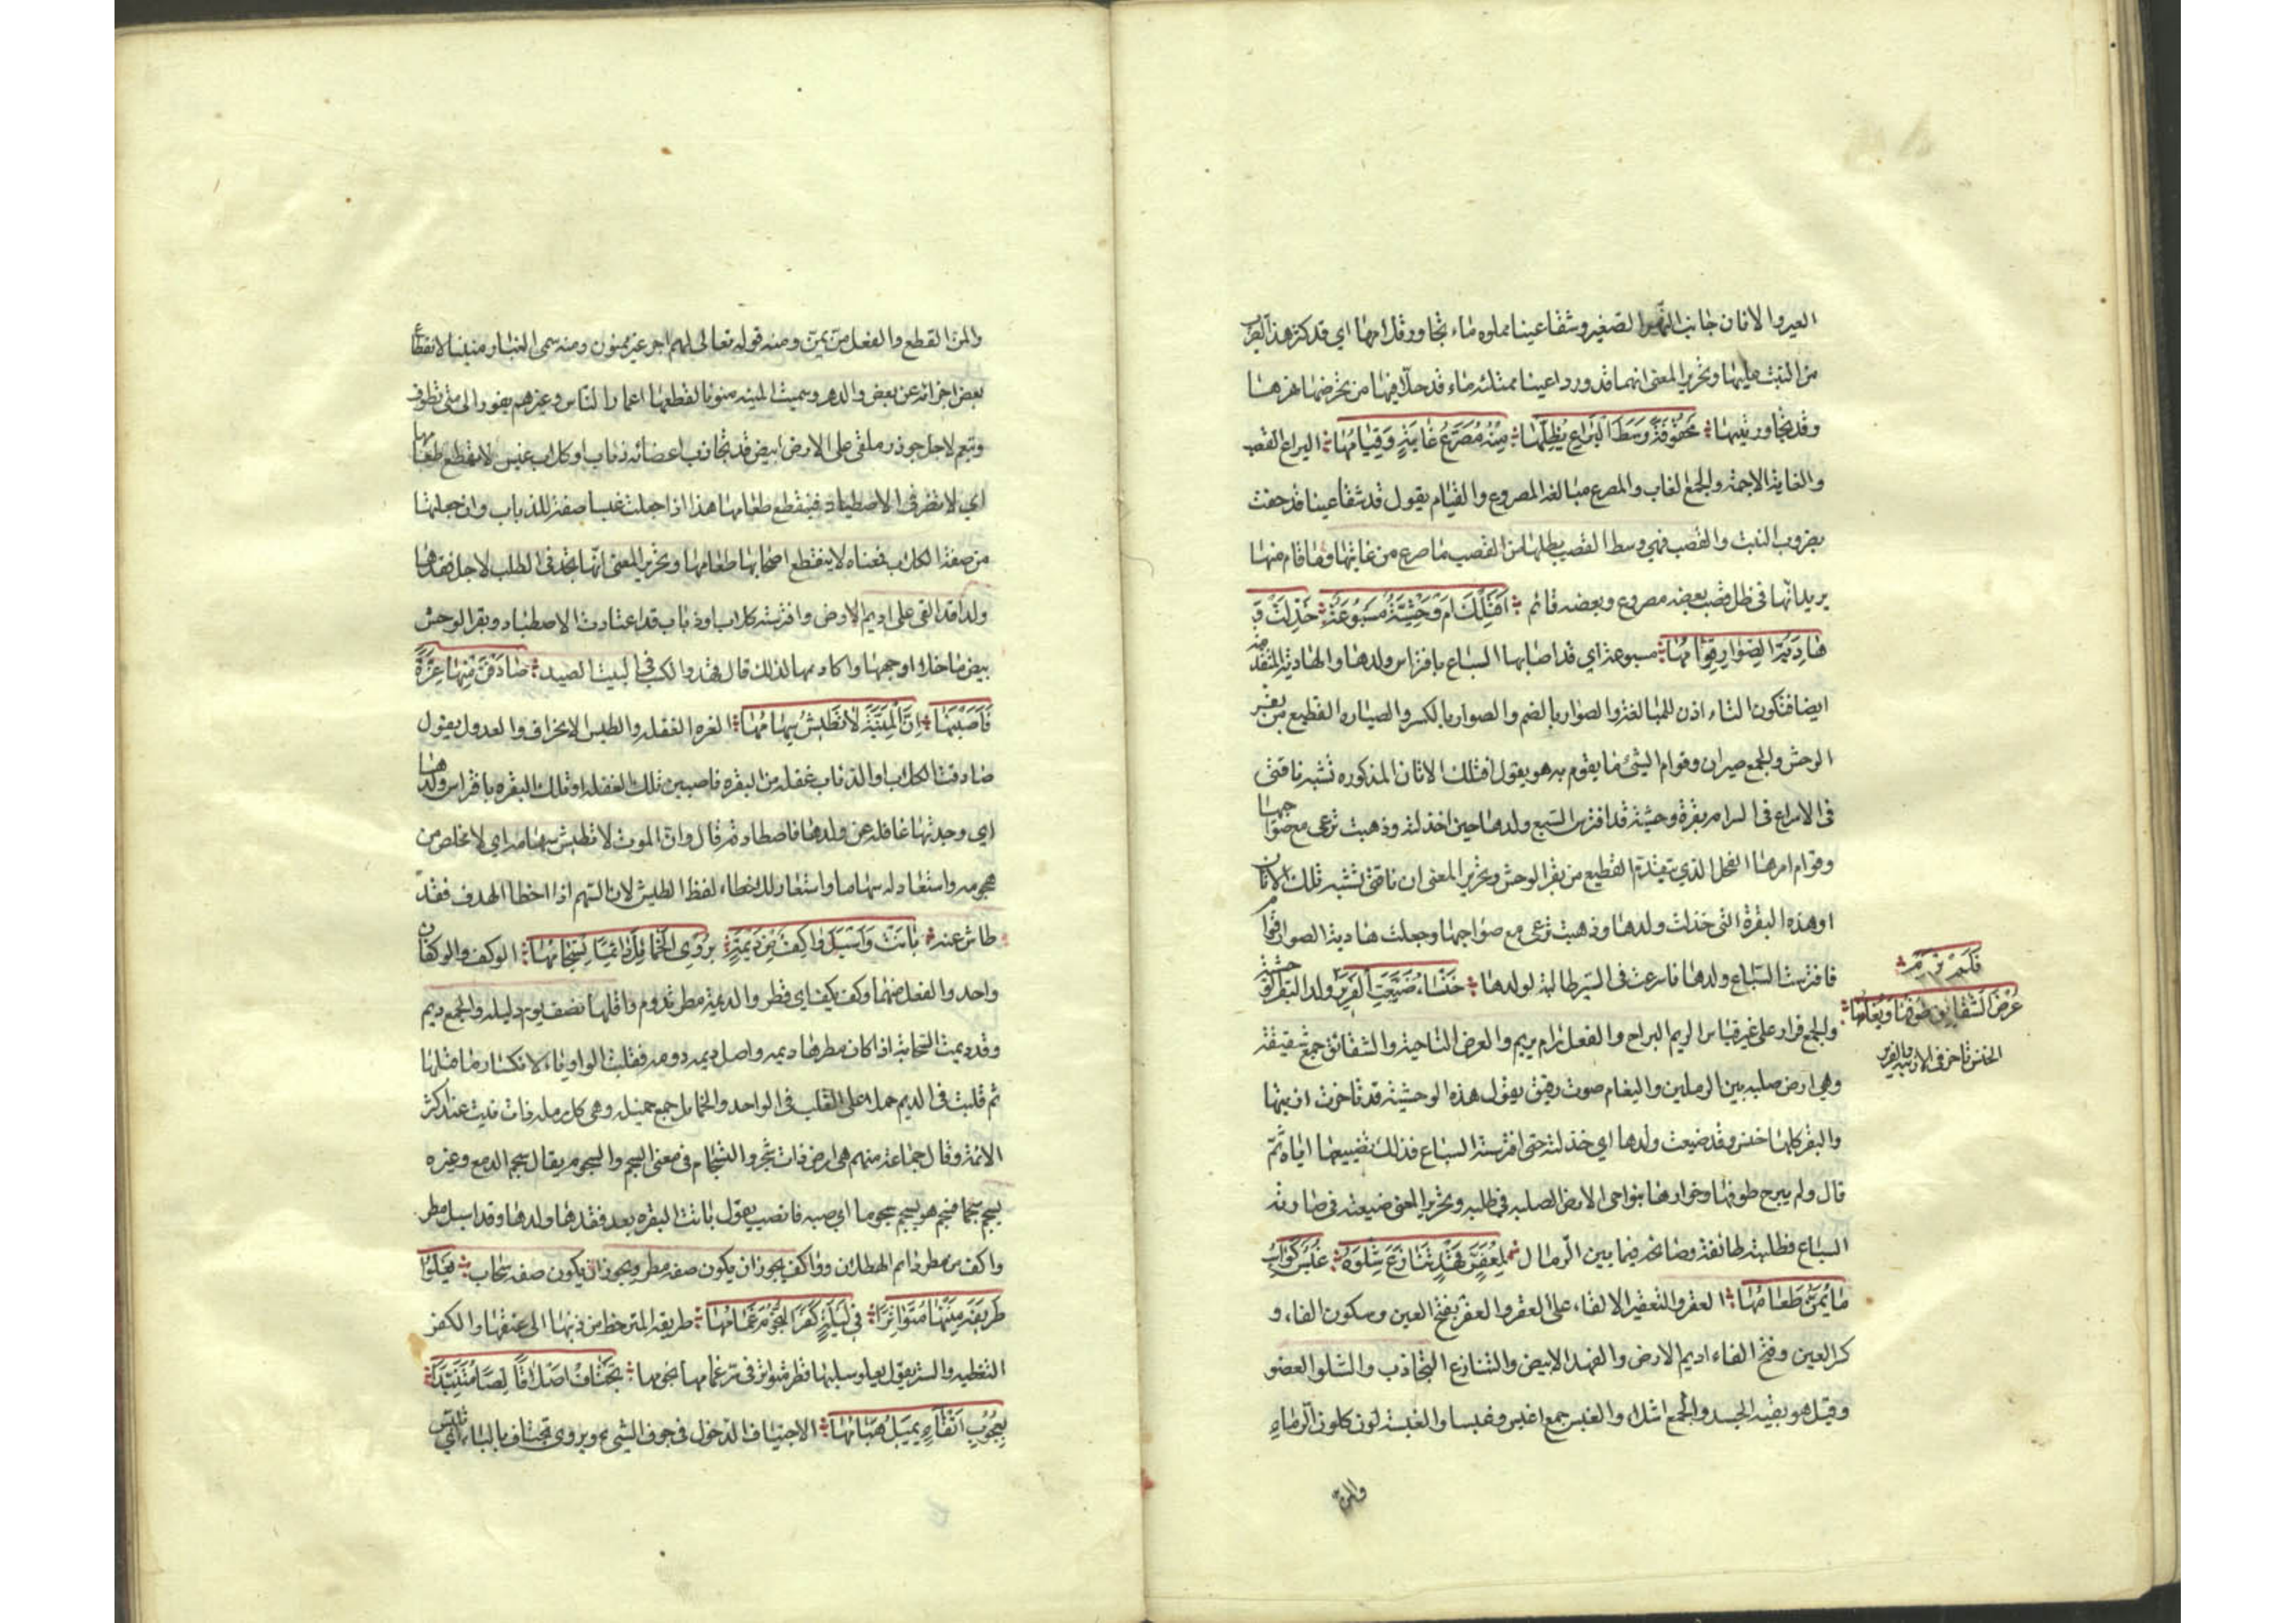 العير والاتان جانب النهر الصغير وشقا عينا مملوه ماء تجاور قلامها اي قد كثر هذا الضرب
من النبت عليها وتحرير المعنى انهما قد وردا عينا ممتلئه ماء قد حلا فيها من عرضها نهرها
وقد تجاور نبتها محفوفة وسط اليراع يظلها منه مصرع غابة وقيامها اليراع القصب
والغابة الاجمة والجمع الغاب والمصرع مبالغة المصروع والقيام يقول قد شقا عينا قد حفت
بضروب النبت والقصب فهي وسط القصب يظلها من القصب ما صرع من غابتها وما قام منها
يريد انها في ظل قصب بعضه مصروع وبعضه قائم افتلك ام وحشية مسبوعة خذلت و
هادية الصوار قوامها مسبوعة اي قد اصابها السباع بافتراس ولدها والهادية المتقدمة
ايضا فتكون التاء اذن للمبالغة والصوار بالضم والصوار بالكسر والصيار القطيع من بقر
الوحش والجمع صيران وقوام الشئ ما يقوم به هو يقول افتلك الاتان المذكوره تشبه ناقتي
في الاسراع في السير ام بقرة وحشية قد افترس السبع ولدها حين خذلته وذهبت ترعى مع صواحبها
وقوام امرها الفحل الذي يتقدم القطيع من بقر الوحش وتحرير المعنى ان ناقتي تشبه تلك الاتان
او هذه البقرة التي خذلت ولدها وذهبت ترعى مع صواحبها وجعلت هادية الصوار قوام
فافترست السباع ولدها فاسرعت في السير طالبة لولدها خنساء ضيعت الفرير ولد البقرة الوحشية
فلم يرم
عرض الشقائق طوفها وبغامها
الخنس تاخر في الارنبة والفرير
والجمع فرار على غير قياس الريم البراح والفعل رام يريم والعرض الناحية والشقائق جمع شقيقة
وهي ارض صلبه بين الرملين والبغام صوت رقيق يقول هذه الوحشية قد تاخرت ارنبتها
والبقر كلها خنس وقد ضيعت ولدها اي خذلته حتى افترسته السباع فذلك تضييعها اياه ثم
قال ولم يبرح طوفها وخوارها بنواحي الارض الصلبه في طلبه وتحرير المعنى ضيعته في صادته
السباع فطلبته طائفة وصائحة فيما بين الرمال لمعفر قهد تنازع شلوه غبس كواسب
ما يمن طعامها العفر والتعفير الالقاء على العفر والعفر بفتح العين وسكون الفاء و
كسر العين وفتح الفاء اديم الارض والقهد الابيض والتنازع التجاذب والشلو العضو
وقيل هو بقيه الجسد والجمع اشلاء والغبس جمع اغبس وغبساء والغبسة لون كلون الرماد
والمن
والمن القطع والفعل من يمن ومنه قوله تعالى لهم اجر غير ممنون ومنه سمي الغبار منينا لانقطاع
بعض اجزائه عن بعض والدهر وسميت المنيه منونا لقطعها اعمار الناس وغيرهم يقول الى متى تطوف
وتبغم لاجل جوذر ملقى على الارض ابيض قد تجاذب اعضائه ذئاب او كلاب غبس لا يقطع طعامها
اي لا تفتر في الاصطياد فينقطع طعامها هذا اذا جعلت غبسا صفة للذئاب وان جعلتها
من صفة الكلاب فمعناه لا ينقطع اصحابها طعامها وتحرير المعنى انها تجد في الطلب لاجل فقدها
ولدا قد القي على اديم الارض وافترسته كلاب او ذئاب قد اعتادت الاصطياد وبقر الوحش
بيض ما خلا اوجهها واكارعها لذلك قال قهد والكسب في البيت الصيد صادفن منها غرة
فاصبنها ان المنية لا تطيش سهامها الغرة الغفلة والطيش الانحراف والعدول يقول
صادفت الكلاب او الذئاب غفلة من البقره فاصبن تلك الغفلة او تلك البقره بافتراس ولدها
اي وجدتها غافلة عن ولدها فاصطادته ثم قال وان الموت لا تطيش سهامه اي لا مخلص من
هجومه واستعار له سهاما واستعار للاخطاء لفظ الطيش لان السهم اذا اخطا الهدف فقد
طاش عنه باتت واسبل واكف من ديمة يروي الخمائل دائما تسجامها الوكف والوكفان
واحد والفعل منهما وكف يكف اي قطر والديمة مطر تدوم واقلها نصف يوم وليله والجمع ديم
وقد ديمت السحابة اذا كان مطرها ديمه واصل ديمه دومه فقلبت الواو ياء لانكسار ما قبلها
ثم قلبت في الديم حملا على القلب في الواحد والخمايل جمع خميله وهي كل رملة ذات نبت عند اكثر
الائمة وقال جماعة منهم هي ارض ذات شجر والتسجام في معنى السجم والسجوم يقال سجم الدمع وغيره
يسجم سجما فسجم هو يسجم سجوما اي صبه فانصب يقول باتت البقره بعد فقدها ولدها وقد اسبل مطر
واكف من مطر دائم الهطلان وواكف يجوز ان يكون صفه مطر ويجوز ان يكون صفه سحاب يعلو
طريقة متنها متواترا في ليلة كفر النجوم غمامها طريقة المتن خط من ذنبها الى عنقها والكفر
التغطيه والستر يقول يعلو صلبها قطر متواتر في ستر غمامها نجومها تجتاف اصلا قالصا متنبذا
بعجوب انقاء يميل هيامها الاجتياف الدخول في جوف الشئ ويروى تجتاب بالباء اي تلبس